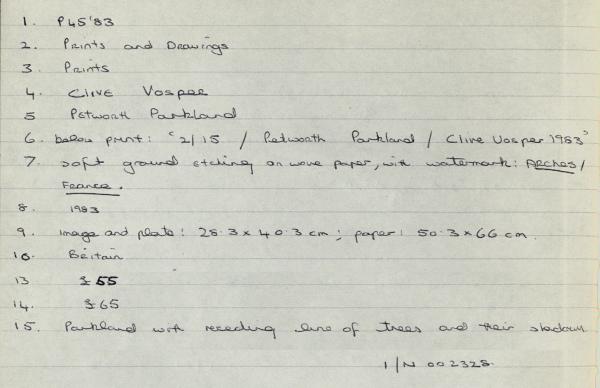 1. P45'83
2. Prints and Drawings
3. Prints
4. Clive Vosper
5 Petworth Parkland
6. below print: '2/15 / Petworth Parkland / Clive Vosper 1983'
7. soft ground etching on wove paper, with watermark: ARCHES /
FRANCE.
8. 1983
9. image and plate: 28.3 x 40.3 cm; paper: 50.3 x 66 cm.
10. Britain
13 £55
14. £65
15. Parkland with receding line of trees and their shadows
1/N 002328.